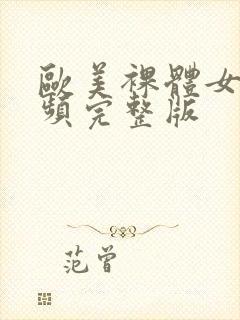 歐美裸體女
頻完整版
范曾